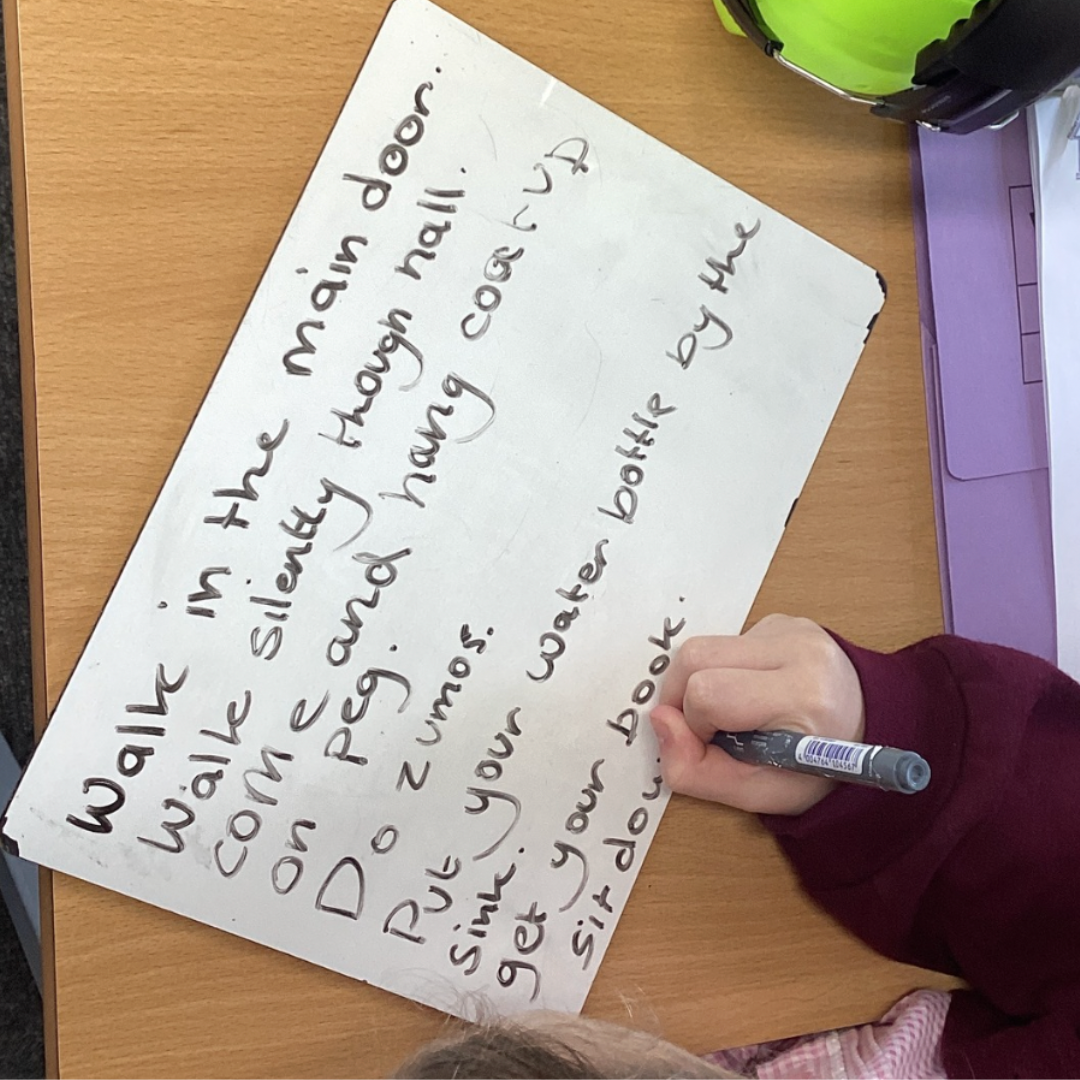 Walk in the main door.
Walk silently though hall.
come and hang coat up
on peg.
Do zumos.
Put your water bottle by the
sink.
get your book.
sit dow
4004764 104567